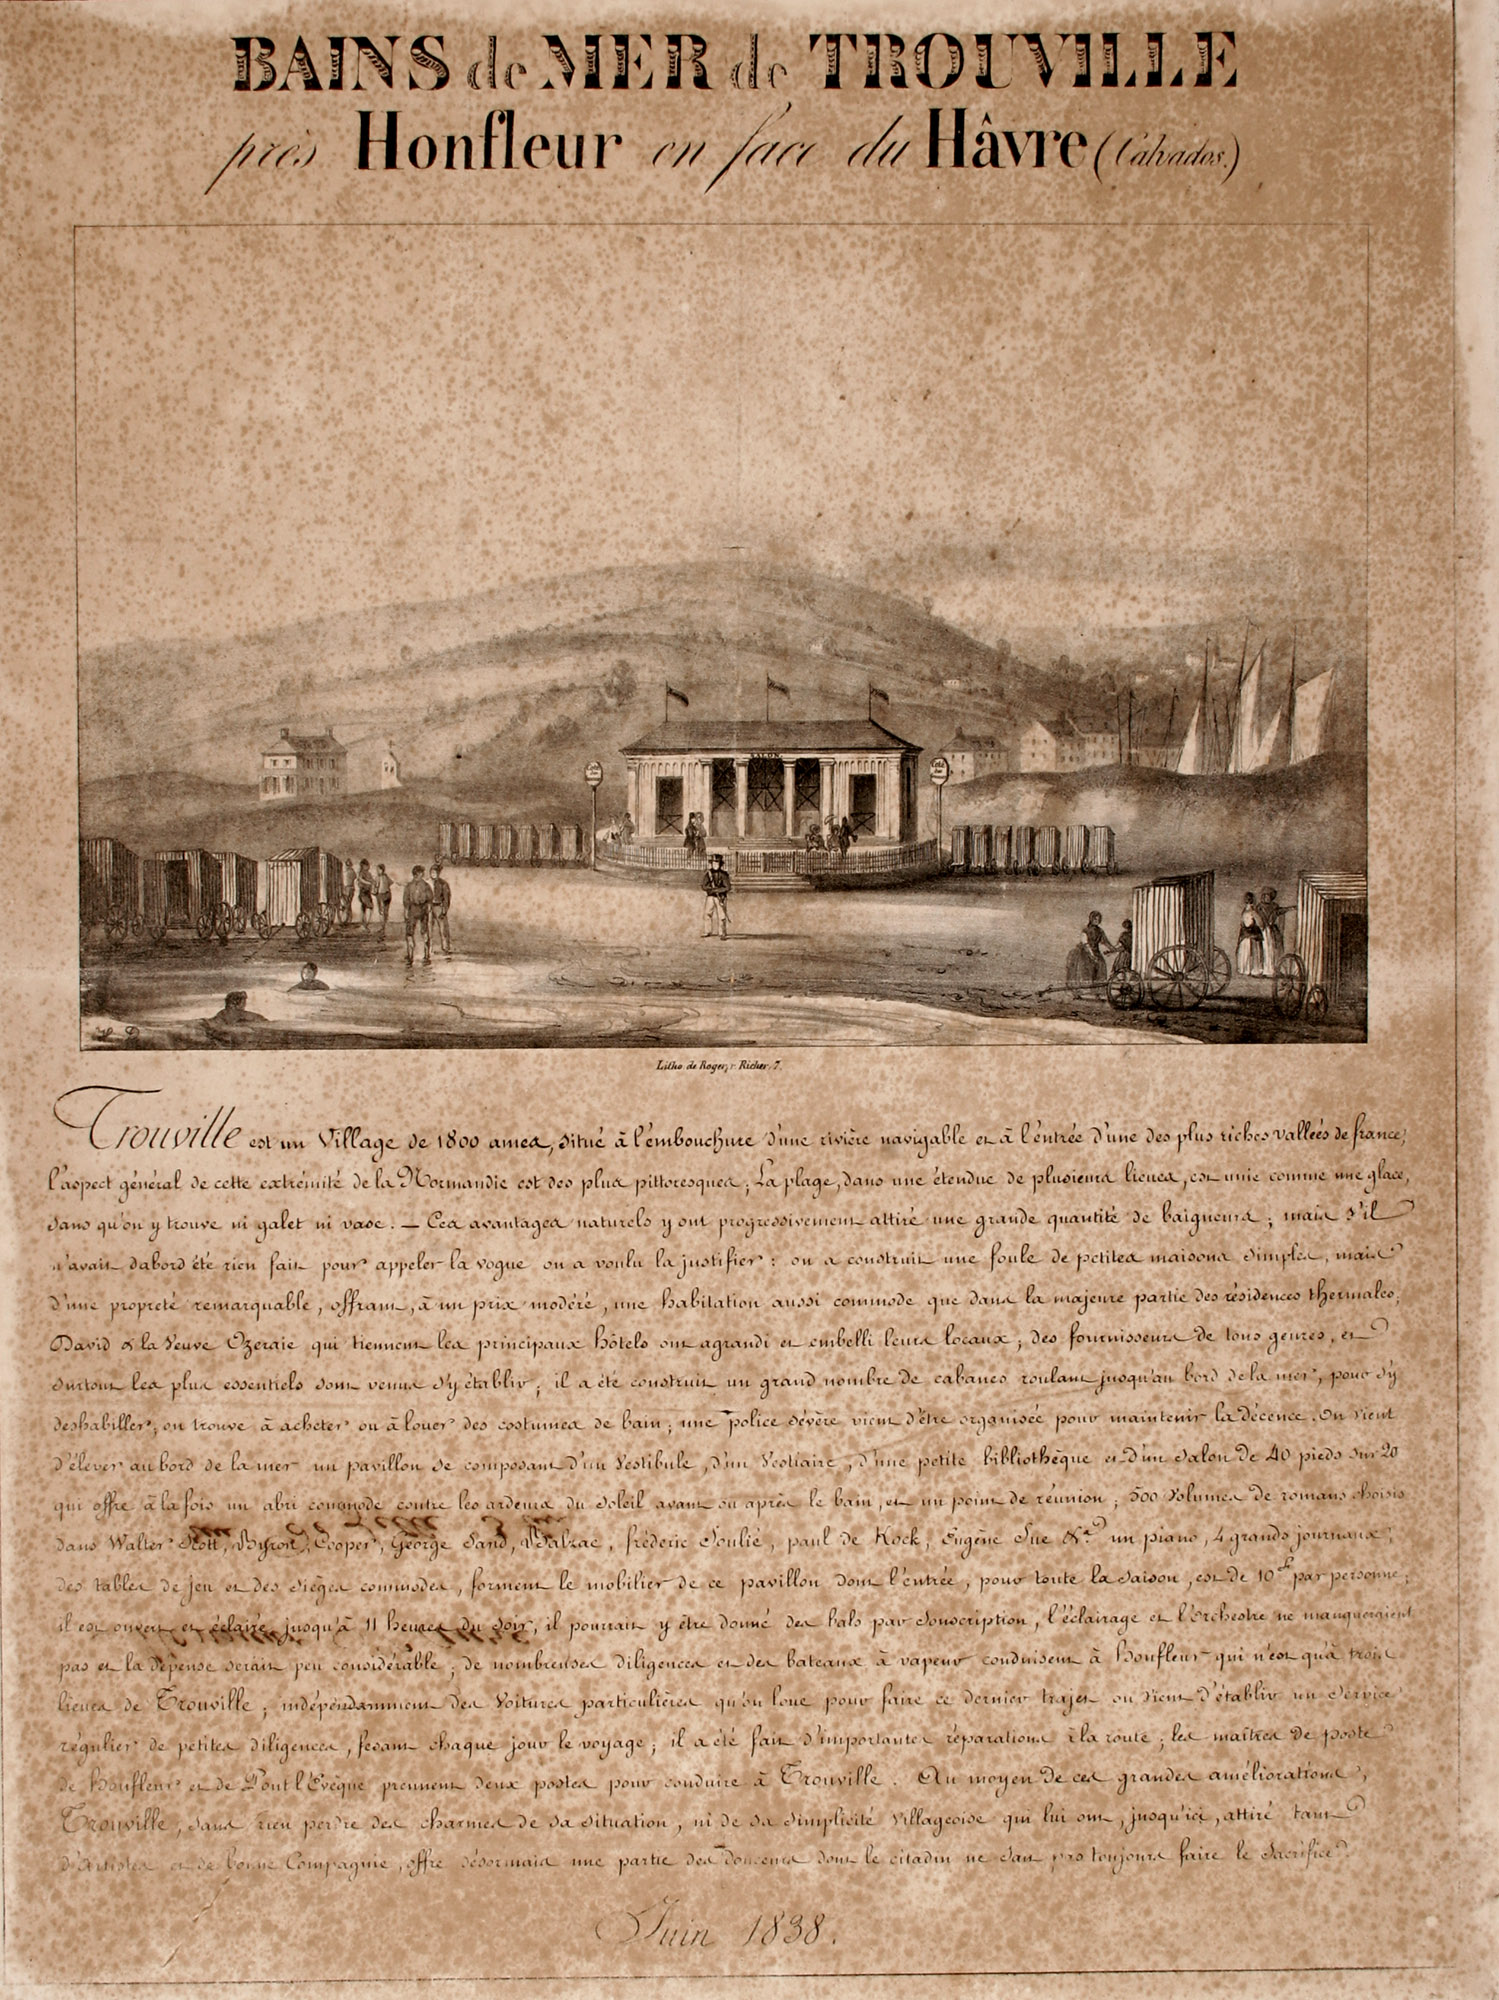 BAINS de MER de TROUVILLE
près Honfleur en face du Hâvre (Calvados.)
SALON
H D
Litho. de Roger, r. Richer, 7.
Trouville est un Village de 1800 ames, situé à l'embouchure d'une rivière navigable et à l'entrée d'une des plus riches vallées de france;
l'aspect général de cette extrémité de la Normandie est des plus pittoresques; La plage, dans une étendue de plusieurs lieues, est unie comme une glace,
sans qu'on y trouve ni galet ni vase. — Ces avantages naturels y ont progressivement attiré une grande quantité de baigneurs; mais s'il
n'avait dabord été rien fait pour appeler la vogue on a voulu la justifier: on a construit une foule de petites maisons simples, mais
d'une propreté remarquable, offrant, à un prix modéré, une habitation aussi commode que dans la majeure partie des résidences thermales;
David & la Veuve Ozeraie qui tiennent les principaux hôtels ont agrandi et embelli leurs locaux; des fournisseurs de tous genres, et
surtout les plus essentiels sont venus s'y établir; il a été construit un grand nombre de cabanes roulant jusqu'au bord de la mer, pour s'y
deshabiller; on trouve à acheter ou à louer des costumes de bain; une police sévère vient d'être organisée pour maintenir la décence. On vient
d'élever au bord de la mer un pavillon se composant d'un Vestibule, d'un Vestiaire, d'une petite bibliothèque et d'un salon de 40 pieds sur 20
qui offre à la fois un abri commode contre les ardeurs du soleil avant ou après le bain, et un point de réunion; 500 Volumes de romans choisis
dans Walter Scott, Byron, Cooper, George Sand, Balzac, frédéric Soulié, paul de Kock, Eugène Sue &a. un piano, 4 grands journaux,
des tables de jeu et des sièges commodes, forment le mobilier de ce pavillon dont l'entrée, pour toute la saison, est de 10f par personne;
il est ouvert et éclairé jusqu'à 11 heures du soir, il pourrait y être donné des bals par souscription, l'éclairage et l'orchestre ne manqueraient
pas et la dépense serait peu considérable; de nombreuses diligences et des bateaux à vapeur conduisent à honfleur qui n'est qu'à trois
lieues de Trouville; indépendamment des Voitures particulières qu'on loue pour faire ce dernier trajet on vient d'établir un service
régulier de petites diligences, fesant chaque jour le voyage; il a été fait d'importantes réparations à la route; les maîtres de poste
de honfleur et de Pont l'Evêque prennent deux postes pour conduire à Trouville. Au moyen de ces grandes améliorations,
Trouville, sans rien perdre des charmes de sa situation, ni de sa simplicité Villageoise qui lui ont, jusqu'ici, attiré tant
d'Artistes et de bonne Compagnie, offre désormais une partie des douceurs dont le citadin ne sait pas toujours faire le sacrifice.
Juin 1838.